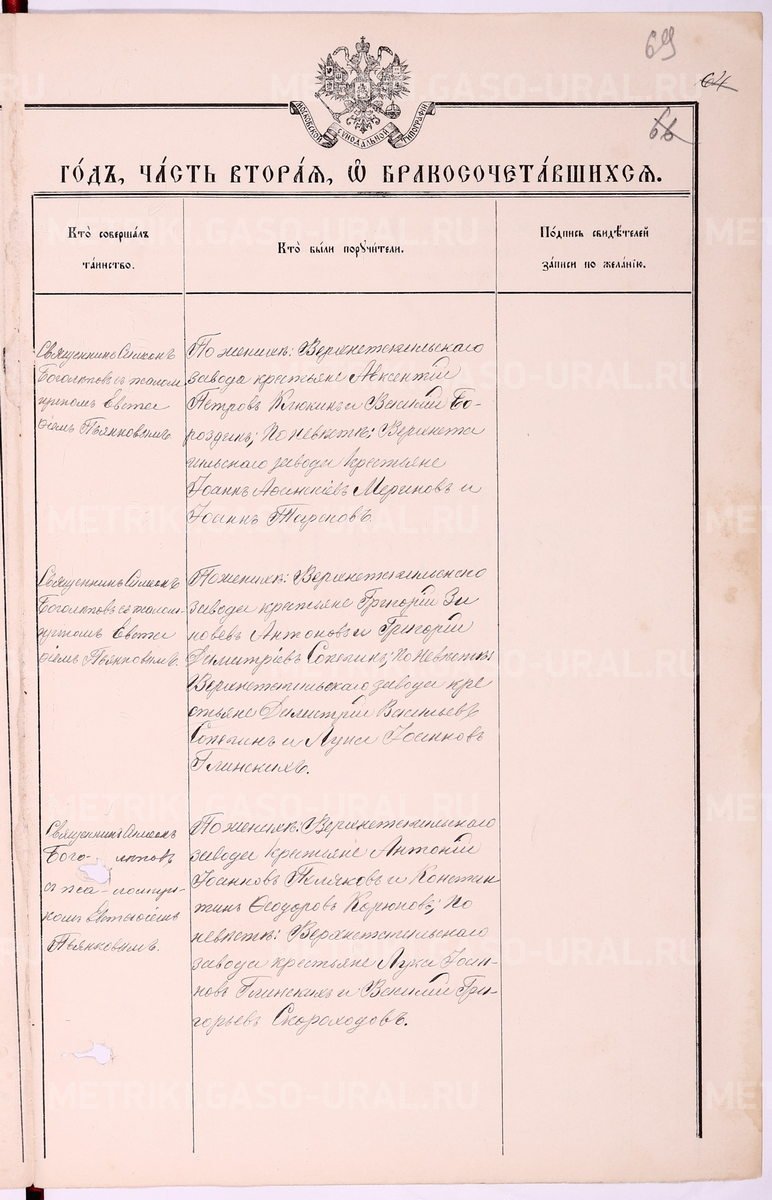 69
64
66
МОСКОВСКОЙ СѴНОДАЛЬНОЙ ТИПОГРАФІИ
ГО́ДЪ, ЧА́СТЬ ВТОРА́Я, Ѽ БРАКОСОЧЕТА́ВШИХСѦ.
Кто̀ соверша́лъ
та́инство.
Кто̀ бы́ли порꙋчи́тели.
По́дпись свидѣ́телей
за́писи по жела́нію.
Священникъ Симеонъ
Боголѣповъ съ псалом
щикомъ Евста
ѳіемъ Пьянковымъ.
По женихѣ: Верхнетагильскаго
завода крестьяне Авксентій
Петровъ Клюкинъ и Василій Бо-
роздинъ; По невѣстѣ: Верхнета
гильскаго завода крестьяне
Іоаннъ Мериновъ и
Іоаннъ
Священникъ Симеонъ
Боголѣповъ съ псалом-
щикомъ Евста
ѳіемъ Пьянковымъ.
По женихѣ: Верхнетагильскаго
завода крестьяне Григорій Зи
новьевъ Антоновъ и Григорій
Димитріевъ Сопегинъ; По невѣстѣ:
Верхнетагильскаго завода кре
стьяне Димитрій Васильевъ
Сопегинъ и Лука Іоанновъ
Глинскихъ.
Священникъ Симеонъ
Бого- лѣповъ
съ пса- ломщи-
комъ Евстаѳіемъ
Пьянковымъ.
По женихѣ: Верхнетагильскаго
завода крестьяне Антоній
Іоанновъ Поляковъ и Констан
тинъ Ѳеодоровъ Корюковъ; По
невѣстѣ: Верхнетагильскаго
завода крестьяне Лука Іоан-
новъ Глинскихъ и Василій Гри-
горьевъ Скороходовъ.
METRIKI.GASO-URAL.RU